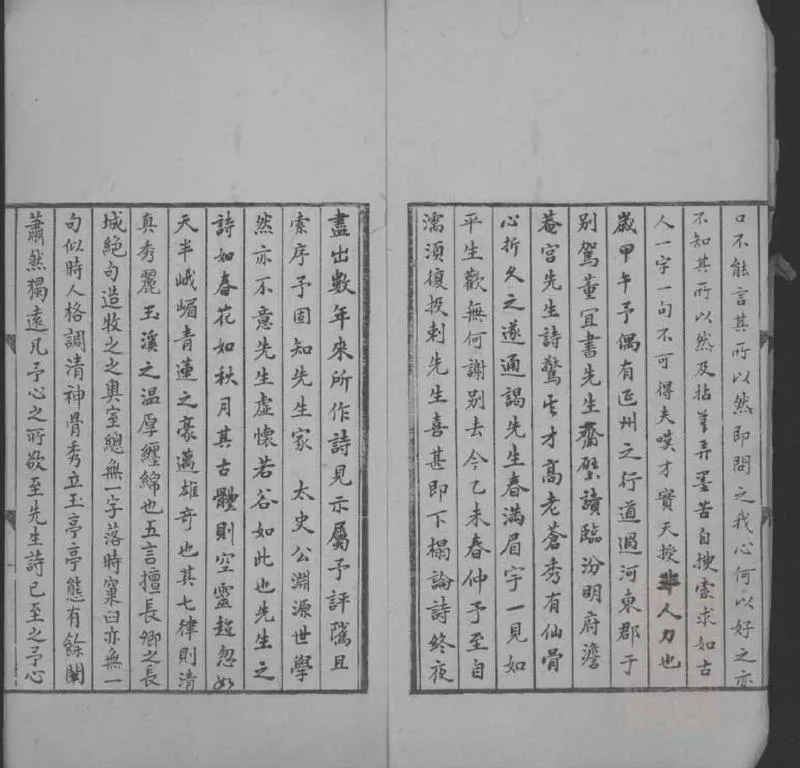 口不能言其所以然即問之我心何以好之亦
不知其所以然及拈筆弄墨苦自搜索求如古
人一字一句不可得夫嘆才實天授非人力也
歲甲午予偶有延州之行道過河東郡于
別駕董宜書先生齋壁讀臨汾明府澹
菴宮先生詩驚其才高老蒼秀有仙骨
心折久之遂通謁先生春滿眉宇一見如
平生歡無何謝別去今乙未春仲予至自
濡須復投刺先生喜甚即下榻論詩終夜
盡出數年來所作詩見示屬予評隲且
索序予固知先生家 太史公淵源世學
然亦不意先生虛懷若谷如此也先生之
詩如春花如秋月其古體則空靈超忽如
天半峨嵋青蓮之豪邁雄奇也其七律則清
真秀麗玉溪之温厚纏綿也五言擅長卿之長
城絕句造牧之之奧室總無一字落時窠臼亦無一
句似時人格調清神骨秀立玉亭亭態有餘閒
蕭然獨遠凡予心之所欲至先生詩已至之予心